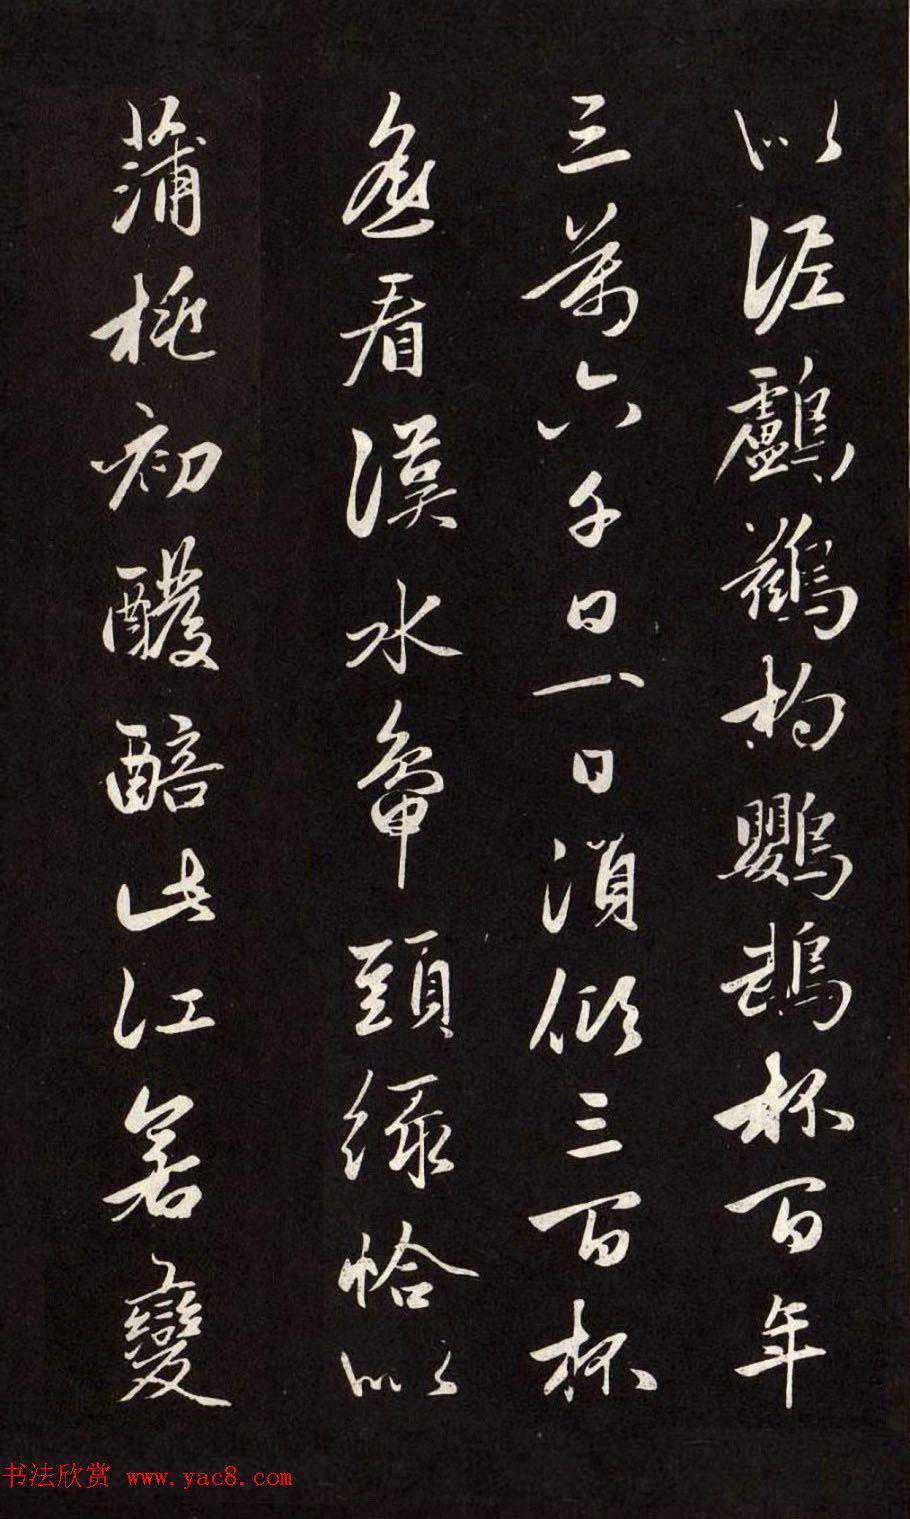 似泥鸕鶿杓鸚鵡杯百年
三萬六千日一日須傾三百杯
遙看漢水鴨頭綠恰似
蒲桃初醱醅此江若變
书法欣赏 www.yac8.com